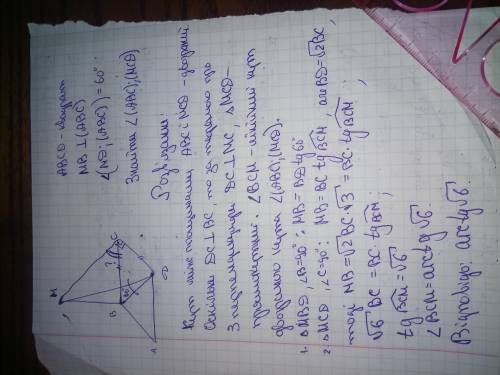 ABCD – квадрат
MB ⊥ (ABC)
∠(MD; (ABC)) = 60°
Знайти ∠(ABC); (MCD)
Розв'язання:
Кут між площинами ABC і MCD – двогранний
Оскільки DC ⊥ BC, то за теоремою про
3 перпендикуляри DC ⊥ MC, △MCD –
прямокутний. ∠BCM – лінійний кут
двогранного кута ∠(ABC); (MCD).
1. △MBD, ∠B=90°; MB = BD tg 60°
2. MB = BC tg BCM, але BD = √2 BC,
тоді MB = √2 BC · √3 = BC · tg BCM;
√6 BC = BC · tg BCM;
tg BCM = √6
∠BCM = arctg √6.
Відповідь: arctg √6.
M
B
C
A
D
60°
?